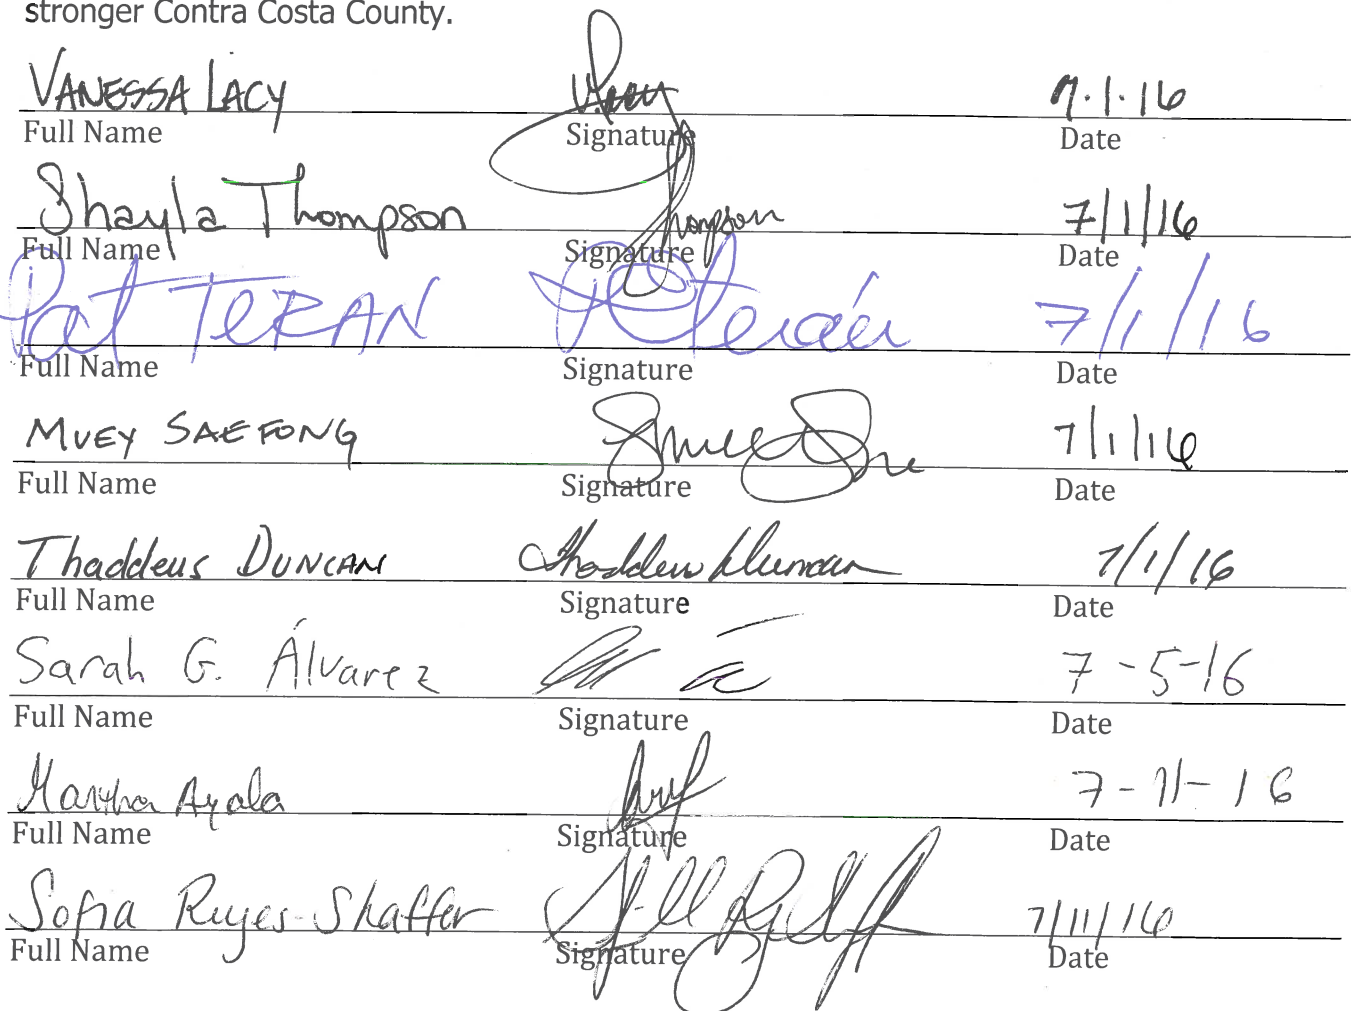 stronger Contra Costa County.
VANESSA LACY 7.1.16
Full Name Signature Date
Shayla Thompson Thompson 7/1/16
Full Name Signature Date
Pat TERAN Terán 7/1/16
Full Name Signature Date
MUEY SAEFONG 7/1/16
Full Name Signature Date
Thaddeus DUNCAN Thaddeus Duncan 7/1/16
Full Name Signature Date
Sarah G. Álvarez 7-5-16
Full Name Signature Date
Martha Ayala 7-11-16
Full Name Signature Date
Sofia Reyes-Shaffer 7/11/16
Full Name Signature Date